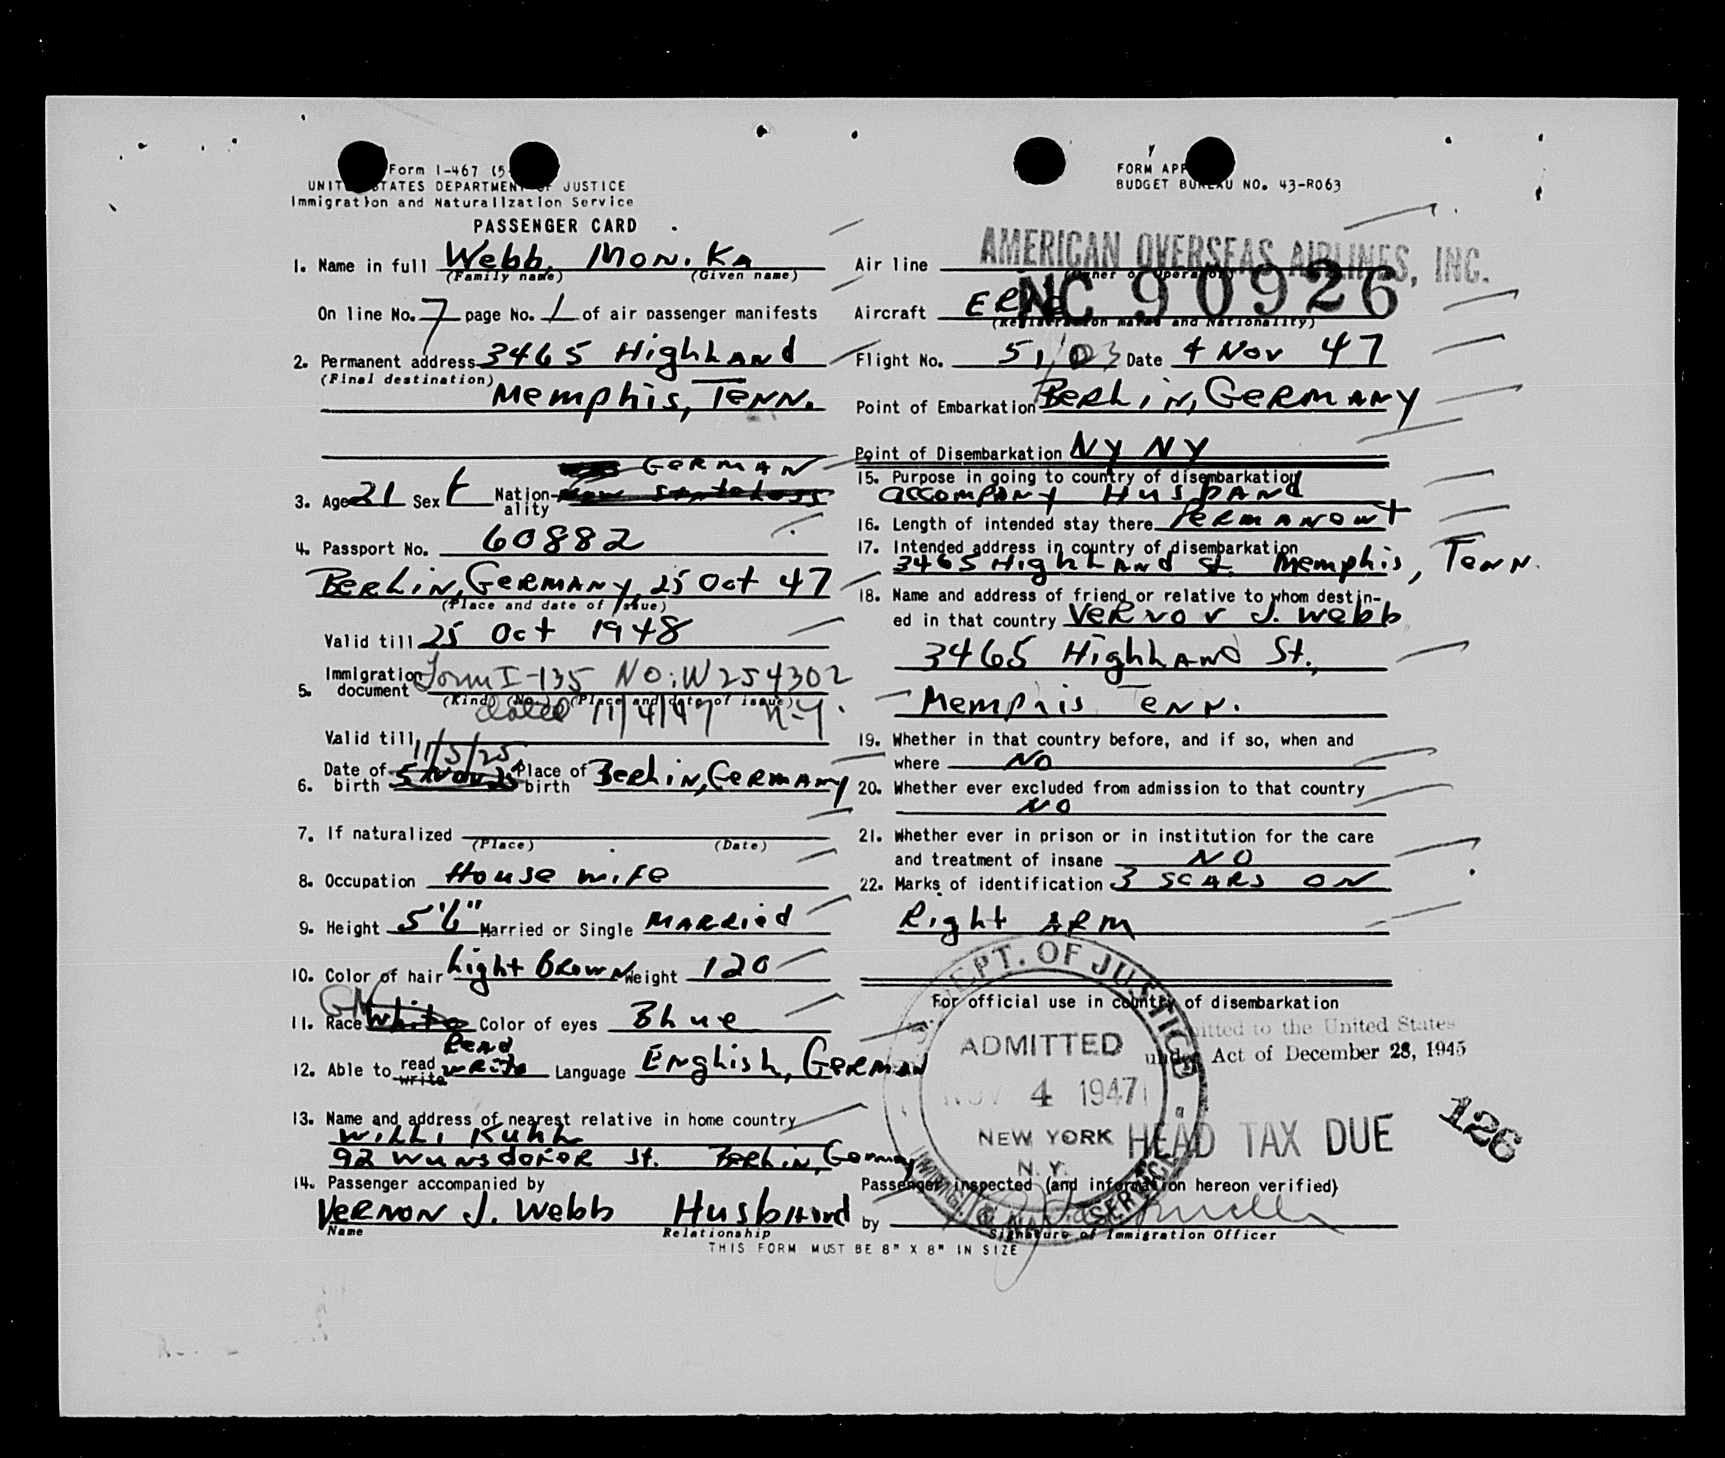 Form I-467 (5
UNITED STATES DEPARTMENT OF JUSTICE
Immigration and Naturalization Service
PASSENGER CARD
1. Name in full Webb, Monika
(Family name) (Given name)
On line No. 7 page No. 1 of air passenger manifests
2. Permanent address 3465 Highland
(Final destination) Memphis, Tenn.
German
3. Age 21 Sex f Nationality
4. Passport No. 60882
Berlin, Germany, 25 Oct 47
(Place and date of issue)
Valid till 25 Oct 1948
5. Immigration document Form I-135 NO: W254302
(Kind) (No.) (Place and date of issue)
dated 11/4/47 N.Y.
Valid till
11/5/25
6. Date of birth 5 Nov 25 Place of birth Berlin, Germany
7. If naturalized
(Place) (Date)
8. Occupation House wife
9. Height 5'6" Married or Single Married
10. Color of hair Light Brown Weight 120
GN
11. Race White Color of eyes Blue
Read
12. Able to read write write Language English, German
13. Name and address of nearest relative in home country
Willi Kuhl
92 Wunsdorfer St. Berlin, Germany
14. Passenger accompanied by
Vernon J. Webb Husband
Name Relationship
THIS FORM MUST BE 8" X 8" IN SIZE
FORM APP
BUDGET BUREAU NO. 43-R063
AMERICAN OVERSEAS AIRLINES, INC.
Air line
(Owner or Operator)
NC 90926
Aircraft
(Registration marks and Nationality)
Flight No. Date 4 Nov 47
Point of Embarkation Berlin, Germany
Point of Disembarkation NY NY
15. Purpose in going to country of disembarkation
accompany Husband
16. Length of intended stay there Permanent
17. Intended address in country of disembarkation
3465 Highland St. Memphis, Tenn.
18. Name and address of friend or relative to whom destin-
ed in that country Vernon J. Webb
3465 Highland St.,
Memphis Tenn.
19. Whether in that country before, and if so, when and
where No
20. Whether ever excluded from admission to that country
No
21. Whether ever in prison or in institution for the care
and treatment of insane No
22. Marks of identification 3 scars on
Right arm
For official use in country of disembarkation
U.S. DEPT. OF JUSTICE
ADMITTED
NOV 4 1947
NEW YORK
N.Y.
IMMIG. & NAT. SERVICE
Admitted to the United States
under Act of December 28, 1945
HEAD TAX DUE
126
Passenger inspected (and information hereon verified)
by
Signature of Immigration Officer